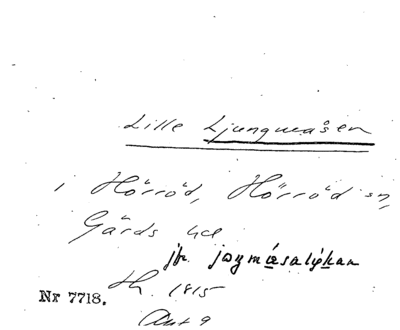 Lille Ljungmåsen
i Hörröd, Hörröd sn,
Gärds hd
jfr. joymåsaliykan
Th. 1815
Nr 7718.
Akt 9